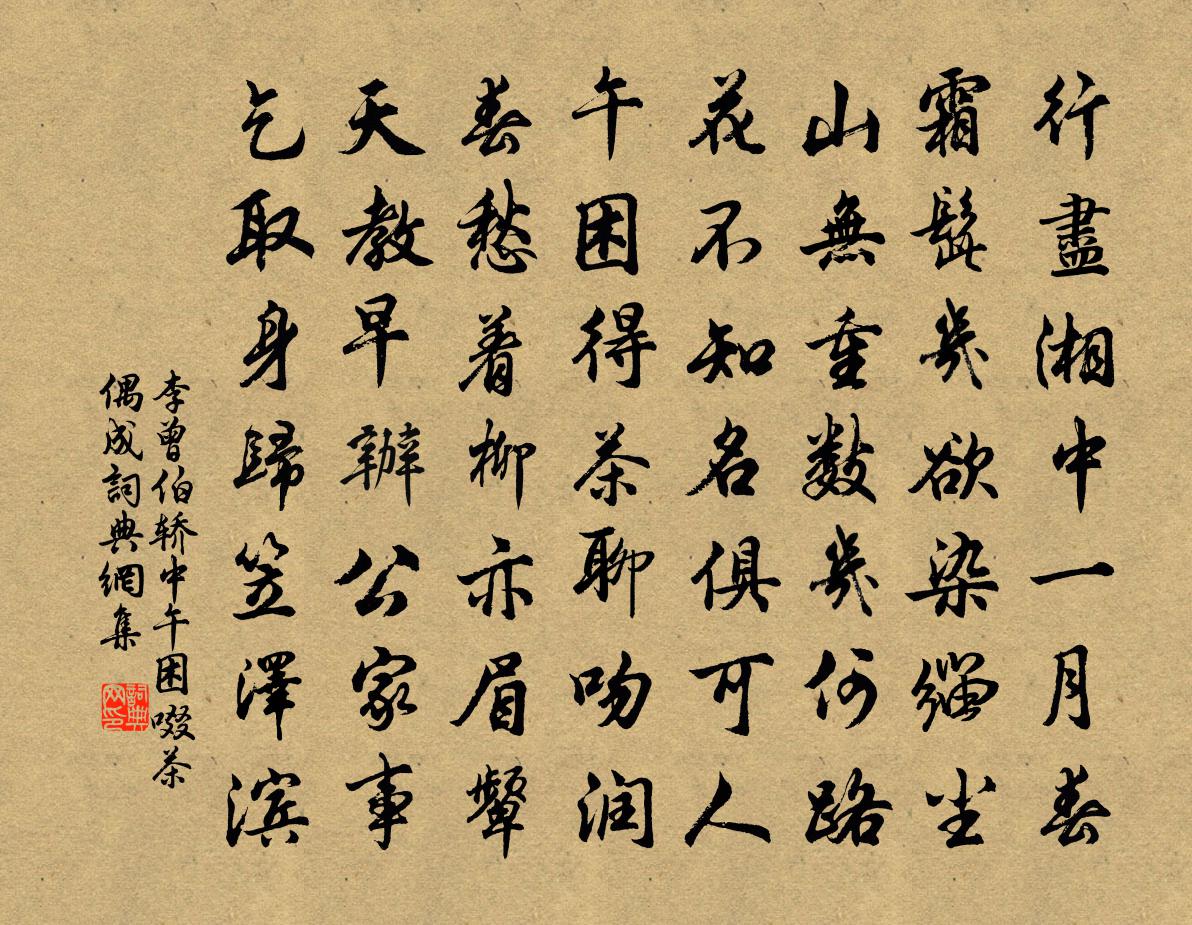 行盡湘中一月春
霜髭幾欲染緇尘
山無重數幾何路
花不知名俱可人
午困得茶聊吻润
春愁着柳亦眉顰
天教早辦公家事
乞取身歸笠澤滨
李曾伯轿中午困啜茶
偶成詞典網集
詞典网印